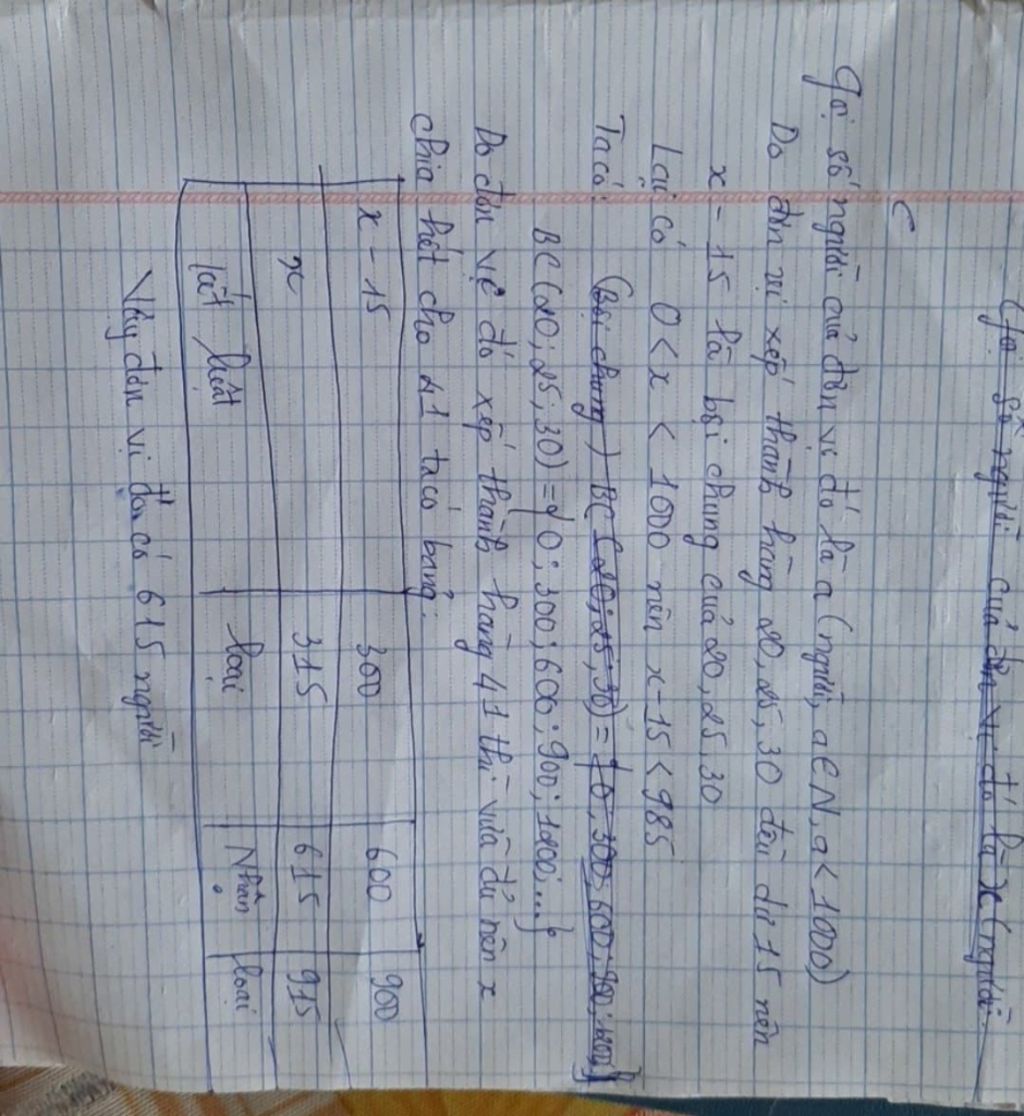 Gọi số người của đơn vị đó là x (người
Gọi số người của đơn vị đó là a (người, a ∈ N, a < 1000)
Do đơn vị xếp thành hàng 20, 25, 30 đều dư 15 nên
x - 15 là bội chung của 20, 25, 30
Lại có 0 < x < 1000 nên x - 15 < 985
Ta có: (Bội chung) BC (20; 25; 30) = {0; 300; 600; 900; 1200;}
BC (20; 25; 30) = {0; 300; 600; 900; 1200; ...}
Do đơn vị đó xếp thành hàng 41 thì vừa đủ nên x
chia hết cho 41 ta có bảng:
x - 15 300 600 900
x 315 615 915
loại Nhận loại
Vậy đơn vị đó có 615 người